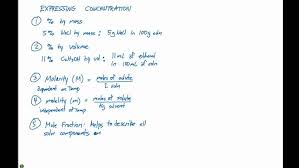 EXPRESSING CONCENTRATION
① % by mass
5% NaCl by mass : 5g NaCl in 100g soln
② % by volume
11% by vol : 11 mL of ethanol
in 100 mL of soln
③ Molarity (M) = moles of solute
L soln
dependent on Temp
④ molality (m) = moles of solute
kg solvent
independent of Temp
⑤ Mole Fraction: helps to describe all
soln components